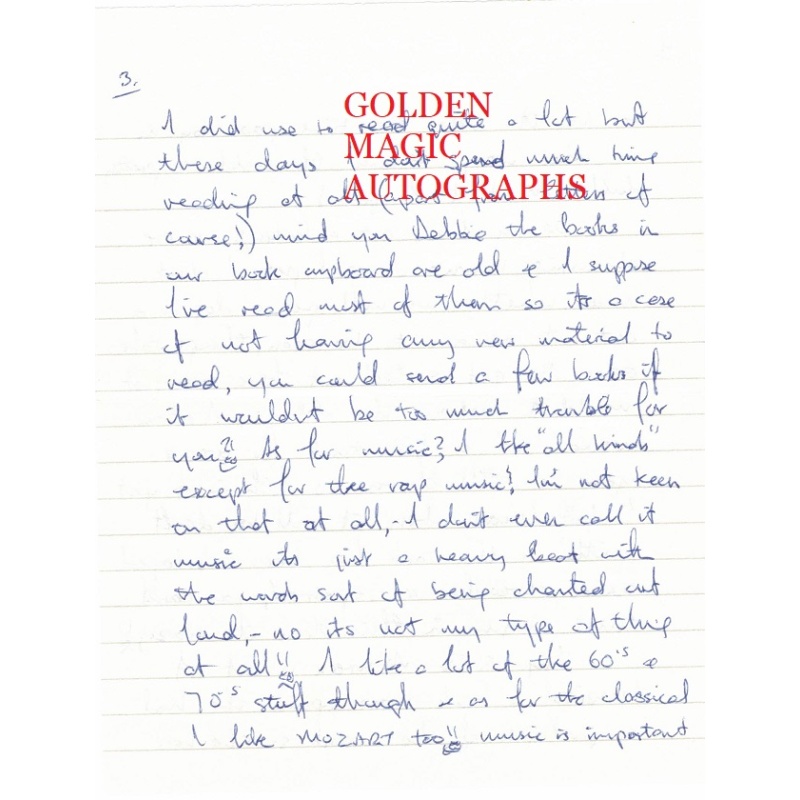 3.
GOLDEN
MAGIC
AUTOGRAPHS
I did use to read quite a lot but
these days I dont spend much time
reading at all (apart from letters of
course!) mind you Debbie the books in
our book cupboard are old & I suppose
I've read most of them so its a case
of not having any new material to
read, you could send a few books if
it wouldnt be too much trouble for
you?! As for music? I like "all kinds"
except for the rap music! Im not keen
on that at all,- I dont even call it
music its just a heavy beat with
the words sort of being chanted out
loud,- no its not my type of thing
at all!! I like a lot of the 60's &
70's stuff though & as for the classical
I like MOZART too!! music is important